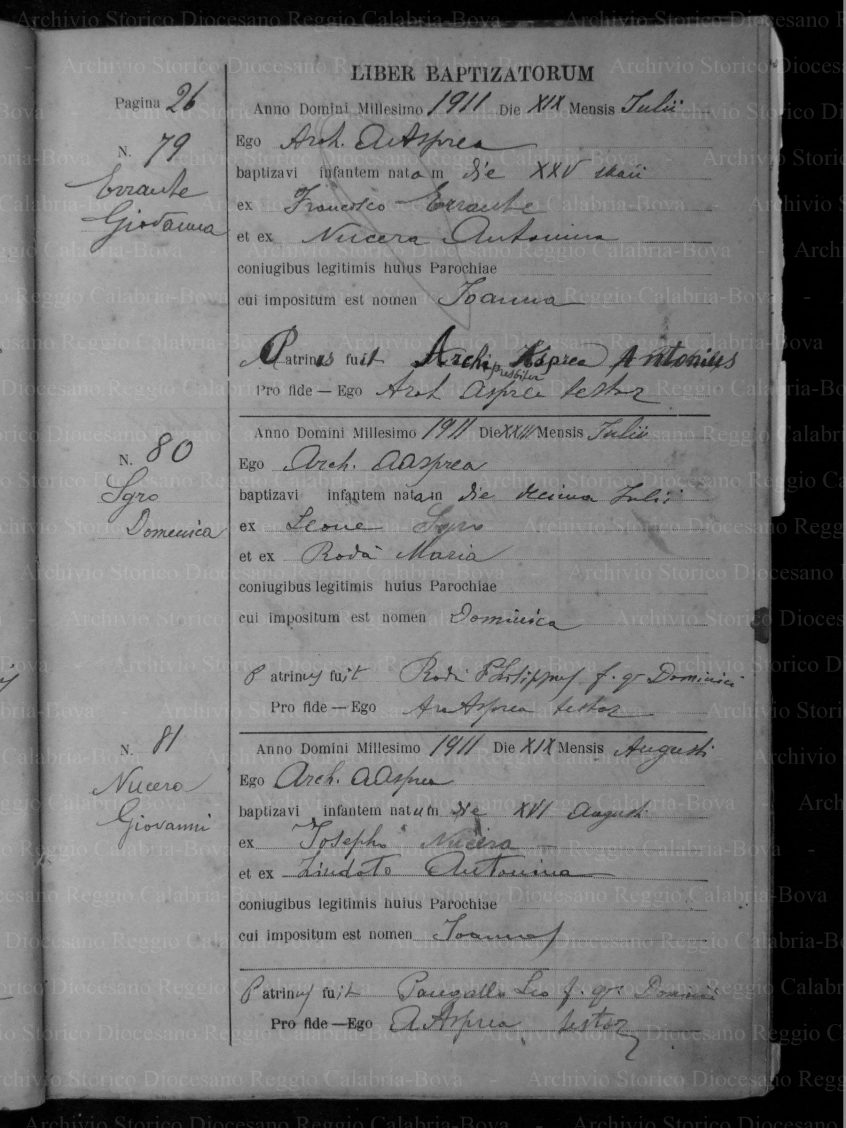 LIBER BAPTIZATORUM
Pagina 26
Anno Domini Millesimo 1911 Die XIX Mensis Iulii
N. 79
Errante
Giovanna
Ego Arch. A Asprea
baptizavi infantem natam die XXV Maii
ex Francesco Errante
et ex Nucera Antonina
coniugibus legitimis huius Parochiae
cui impositum est nomen Ioanna
Patrinus fuit Archipresbiter Asprea Antonius
Pro fide — Ego Arch Asprea testor
Anno Domini Millesimo 1911 Die XXIII Mensis Iulii
N. 80
Sgro
Domenica
Ego Arch. A Asprea
baptizavi infantem natam die decima Iulii
ex Leone Sgro
et ex Rodà Maria
coniugibus legitimis huius Parochiae
cui impositum est nomen Dominica
Patrinus fuit Rodà Philippus f. q. Dominici
Pro fide — Ego Ar A Asprea testor
Anno Domini Millesimo 1911 Die XIX Mensis Augusti
N. 81
Nucera
Giovanni
Ego Arch. A Asprea
baptizavi infantem natum die XVI Augusti
ex Ioseph Nucera
et ex Lindoto Antonina
coniugibus legitimis huius Parochiae
cui impositum est nomen Ioannes
Patrinus fuit Pangallo Leo f. q. Dominici
Pro fide — Ego A Asprea testor
Archivio Storico Diocesano Reggio Calabria-Bova